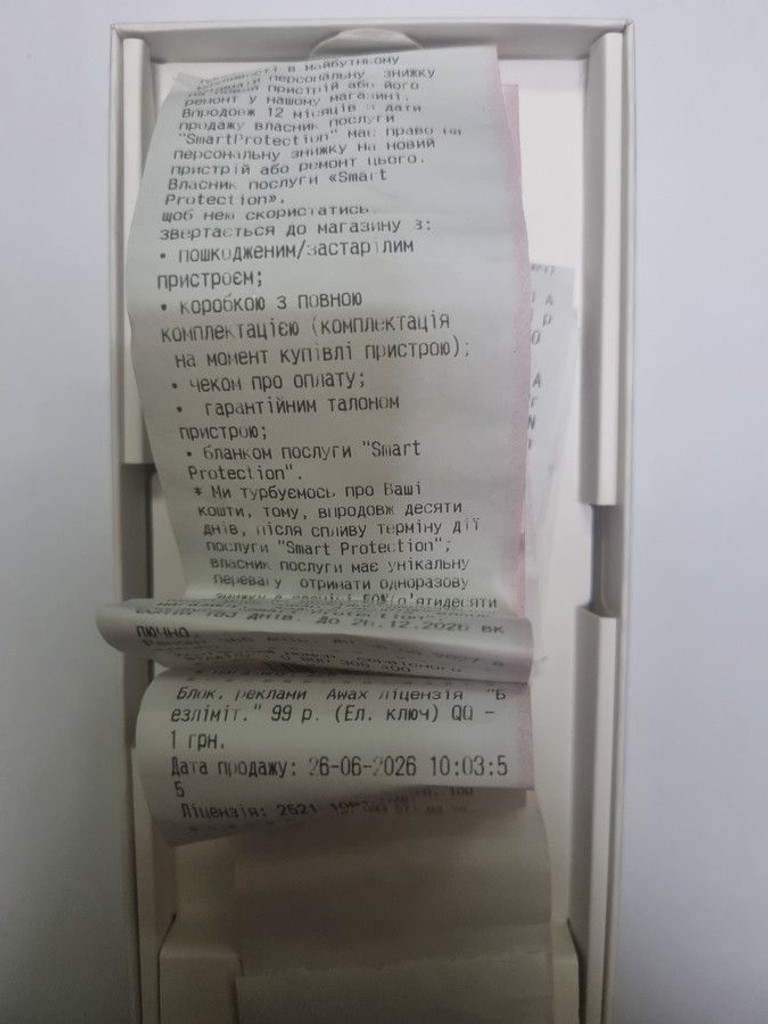 в майбутньому
персональну знижку
пристрій або його
ремонт у нашому магазині.
Впродовж 12 місяців з дати
продажу власник послуги
"SmartProtection" має право на
персональну знижку на новий
пристрій або ремонт цього.
Власник послуги «Smart
Protection»,
щоб нею скористатись
звертається до магазину з:
• пошкодженим/застарілим
пристроєм;
• коробкою з повною
комплектацією (комплектація
на момент купівлі пристрою);
• чеком про оплату;
• гарантійним талоном
пристрою;
• бланком послуги "Smart
Protection".
* Ми турбуємось про Ваші
кошти, тому, впродовж десяти
днів, після спливу терміну дії
послуги "Smart Protection";
власник послуги має унікальну
перевагу отримати одноразову
днів. До 26.12.2026 вк
лючно.
Блок. реклами Awax ліцензія "Б
езліміт." 99 р. (Ел. ключ) QQ -
1 грн.
Дата продажу: 26-06-2026 10:03:5
5
Ліцензія: 2521